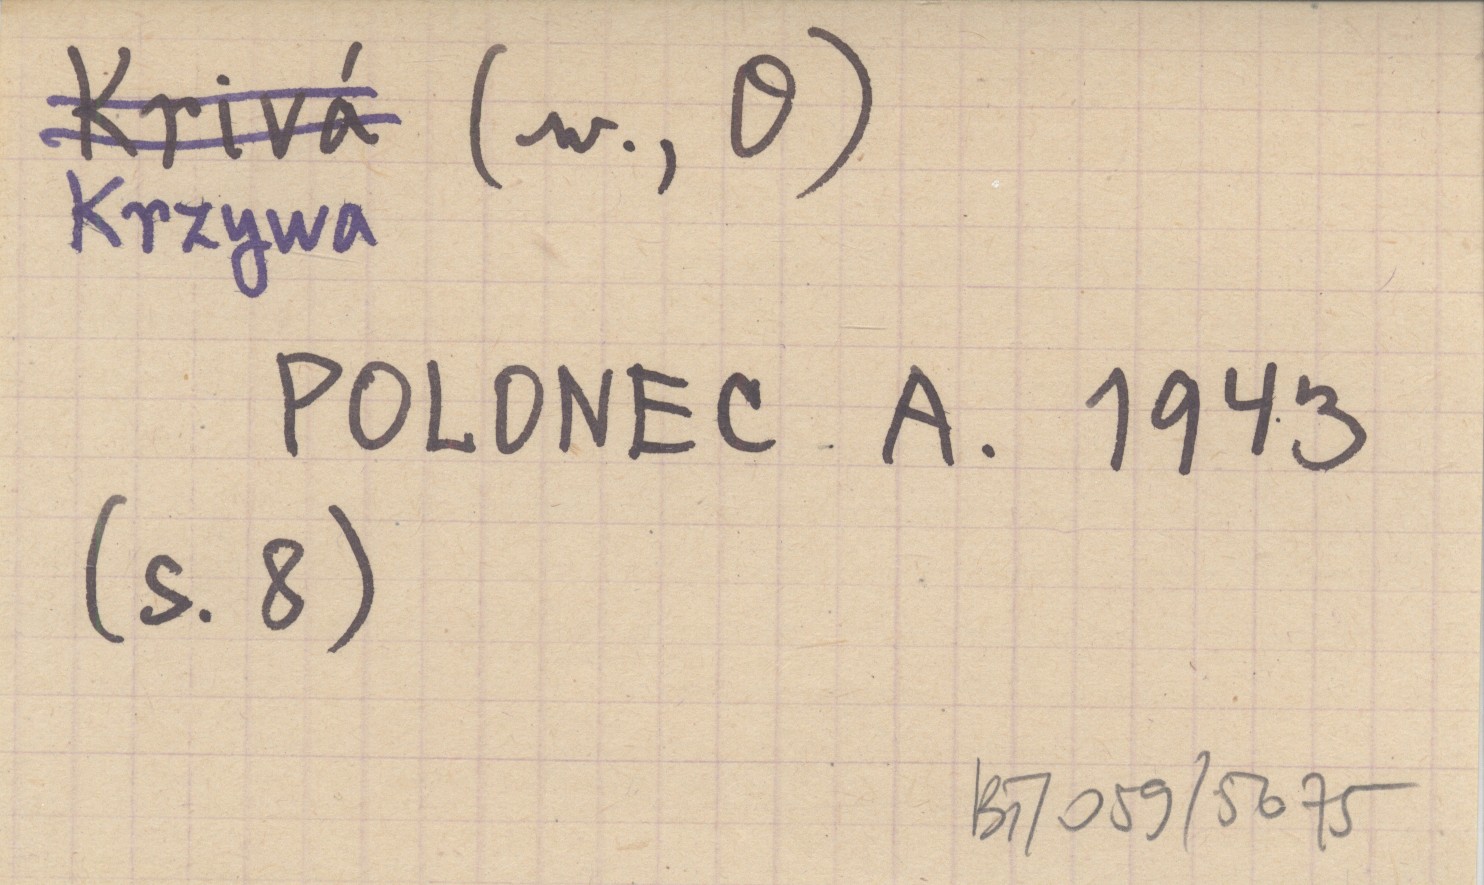 Krivá (w., O)
Krzywa
POLONEC A. 1943
(s. 8)
BT/059/5675